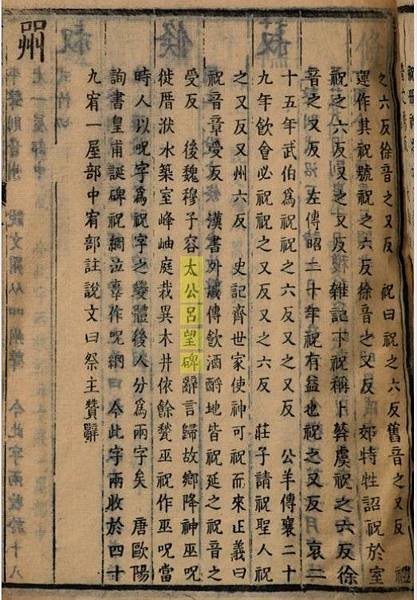 之六反徐音之又反　祝曰祝之六反舊音之又反　禮
運作其祝號祝之六反徐音之又反　郊特牲詔祝於室
祝之六反又之又反　雜記下祝稱卜葬虞祝之六反徐
音之又反　左傳昭二十年祝有益也祝之又反　哀二
十五年武伯爲祝祝之六反又之又反　公羊傳襄二十
九年飲會必祝祝之又反又之六反　莊子請祝聖人祝
之又反又州六反　史記齊世家使神可祝而來正義曰
祝音章受反　漢書外戚傳飲酒酹地皆祝延之祝音之
受反　後魏穆子容太公呂望碑辭言歸故鄉降神巫呪
徙厝洑水築室峰岫庭栽異木井依餘甃巫祝作巫呪當
時人以呪字爲祝字之變體後人分爲兩字矣　唐歐陽
詢書皇甫誕碑祝網泣辜作呪網　今此字兩收於四十
九宥一屋部中宥部註說文曰祭主贊辭
喌
平聲則音州　說文喌从吅州聲　今此字兩收於十八